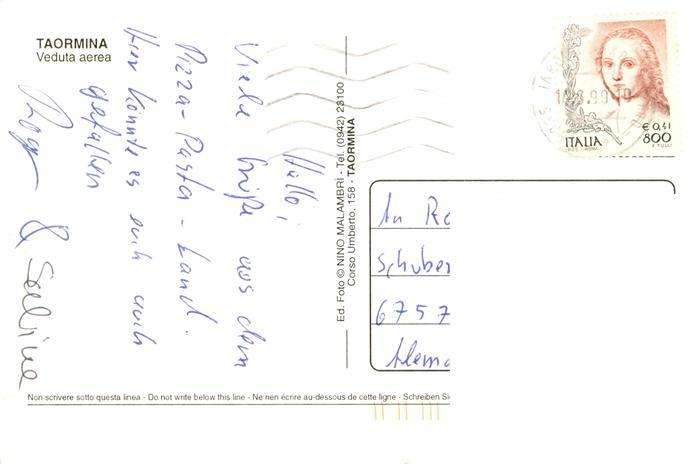 TAORMINA
Veduta aerea
Hallo,
Viele Grüße aus dem
Pizza-Pasta-Land.
Hier könnte es euch auch
gefallen
& Sabine
Ed. Foto © NINO MALAMBRI - Tel. (0942) 23100
Corso Umberto, 158 - TAORMINA
€ 0,41
ITALIA 800
An Ro
Schuber
6757
Alema
Non scrivere sotto questa linea - Do not write below this line - Ne rien écrire au-dessous de cette ligne - Schreiben Si